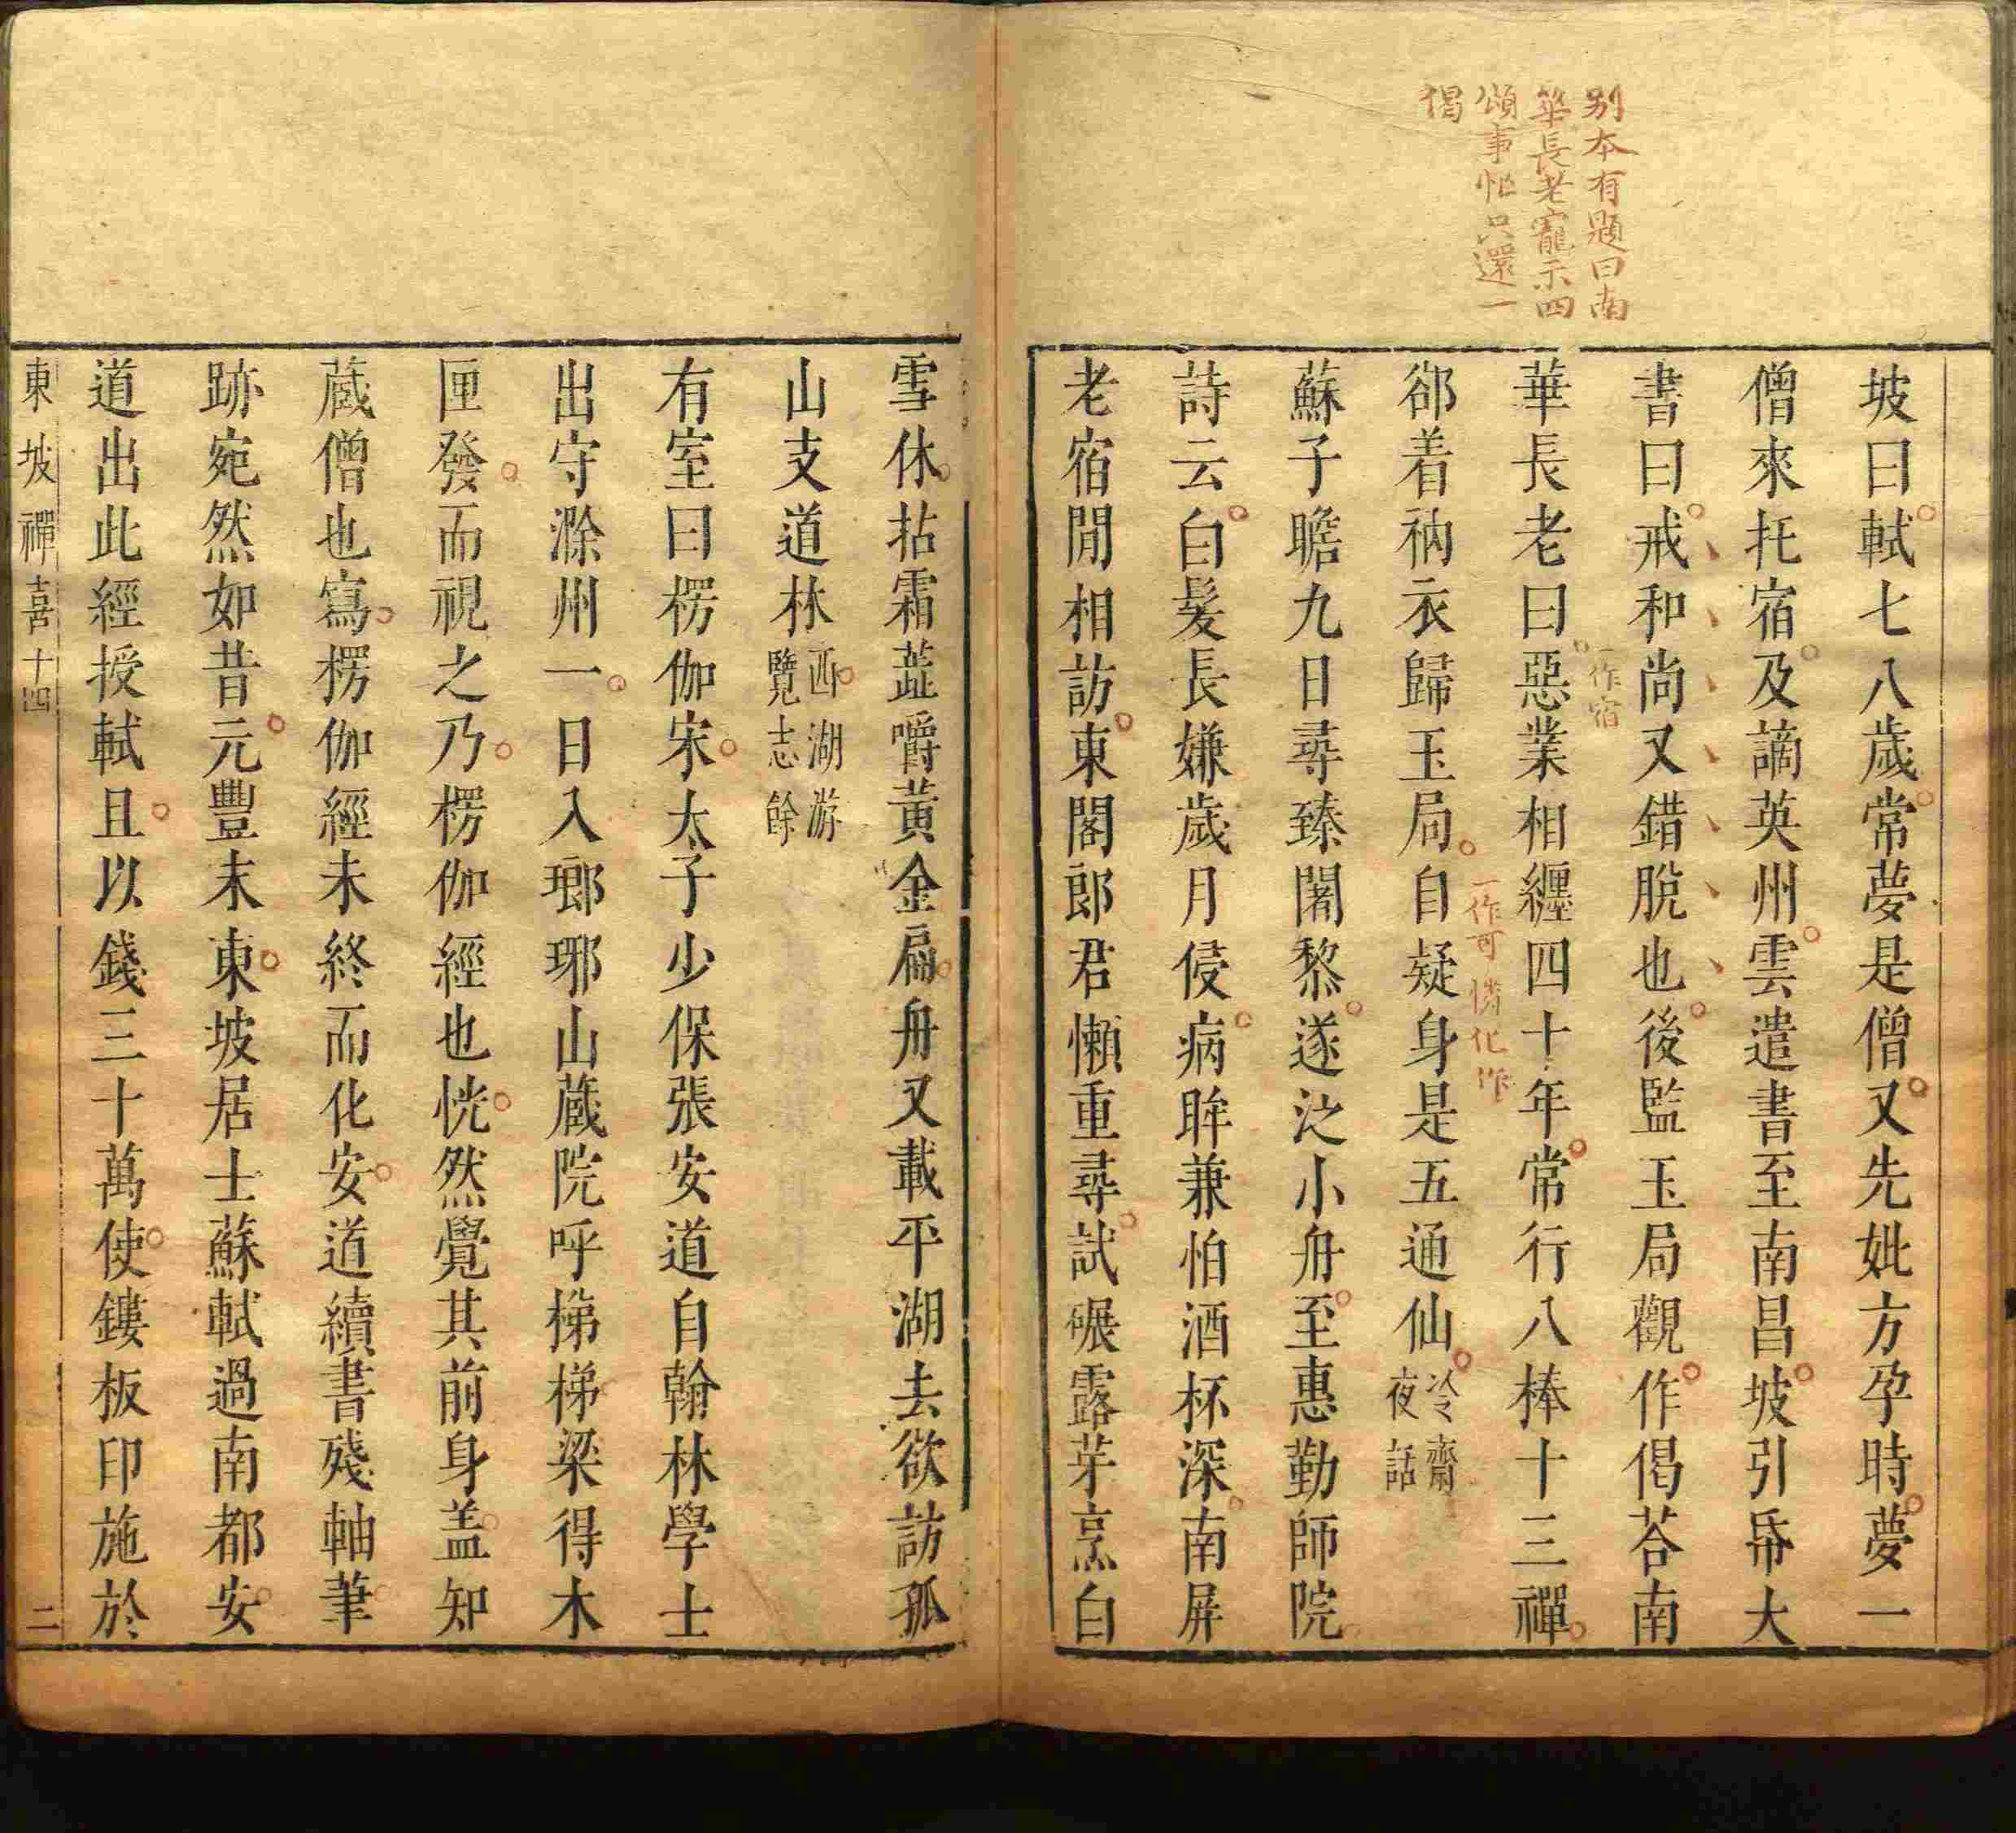 別本有題曰南
華長老寵示四
頌事忙只還一
偈
坡曰軾七八歲常夢是僧又先妣方孕時夢一
僧來托宿及謫英州雲遣書至南昌坡引帋大
書曰戒和尚又錯脫也後監玉局觀作偈荅南
一作宿
華長老曰惡業相纏四十年常行八棒十三禪
一作可憐化作
郤着衲衣歸玉局自疑身是五通仙冷齋
夜話
蘇子瞻九日尋臻闍黎遂泛小舟至惠勤師院
詩云白髮長嫌歲月侵病眸兼怕酒杯深南屏
老宿閒相訪東閣郎君懶重尋試碾露芽烹白
雪休拈霜蘂嚼黃金扁舟又載平湖去欲訪孤
山支道林西湖游
覽志餘
有室曰楞伽宋太子少保張安道自翰林學士
出守滁州一日入瑯琊山藏院呼梯梯梁得木
匣發而視之乃楞伽經也恍然覺其前身盖知
藏僧也寫楞伽經未終而化安道續書殘軸筆
跡宛然如昔元豐末東坡居士蘇軾過南都安
道出此經授軾且以錢三十萬使鏤板印施於
東坡禪喜十四
二